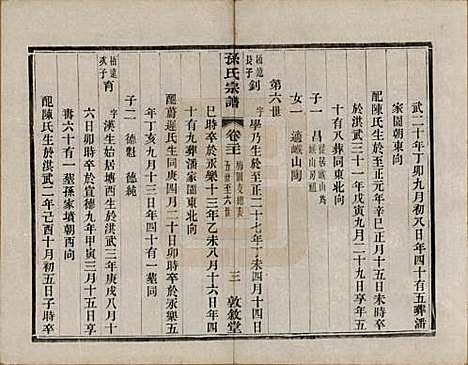 武二十年丁卯九月初八日年四十有五葬潘
家園朝東向
配陳氏生於至正元年辛巳正月十五日
卒於洪武三十一年戊寅九月二十九日享年五
十有八葬同東北向
子一 昌
女一 適峨山陶
第六世
植遠長子 釗 字學乃生於至正二十七年丁未四月十四日
巳時卒於永樂十三年乙未八月十六日年四
十有九葬潘家園東北向
配蔚遲氏生同庚四月二十日時卒於永樂五
年丁亥九月十三日年四十有一墓同
子二 德魁 德純
植遠次子 育 字漢生姑居塘西生於洪武三年庚戌八月十
六日卯時卒於宣德九年甲寅三月十五日享
壽六十有一墓孫家墳朝西向
配陳氏生於洪武二年己酉十月初五日子時卒
孫氏宗譜
卷三
五世至六世
三
敦敘堂